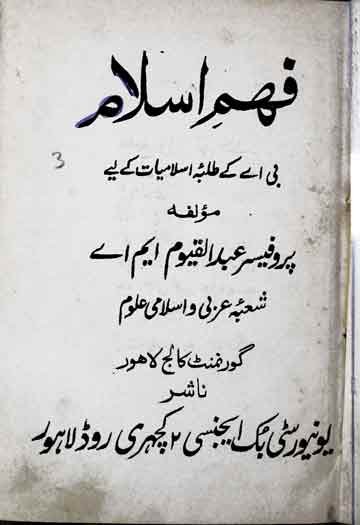 فہمِ اسلام
3
بی اے کے طلبۂ اسلامیات کے لیے
مؤلفہ
پروفیسر عبدالقیوم ایم اے
شعبۂ عربی و اسلامی علوم
گورنمنٹ کالج لاہور
ناشر
یونیورسٹی بک ایجنسی ۲ کچہری روڈ لاہور